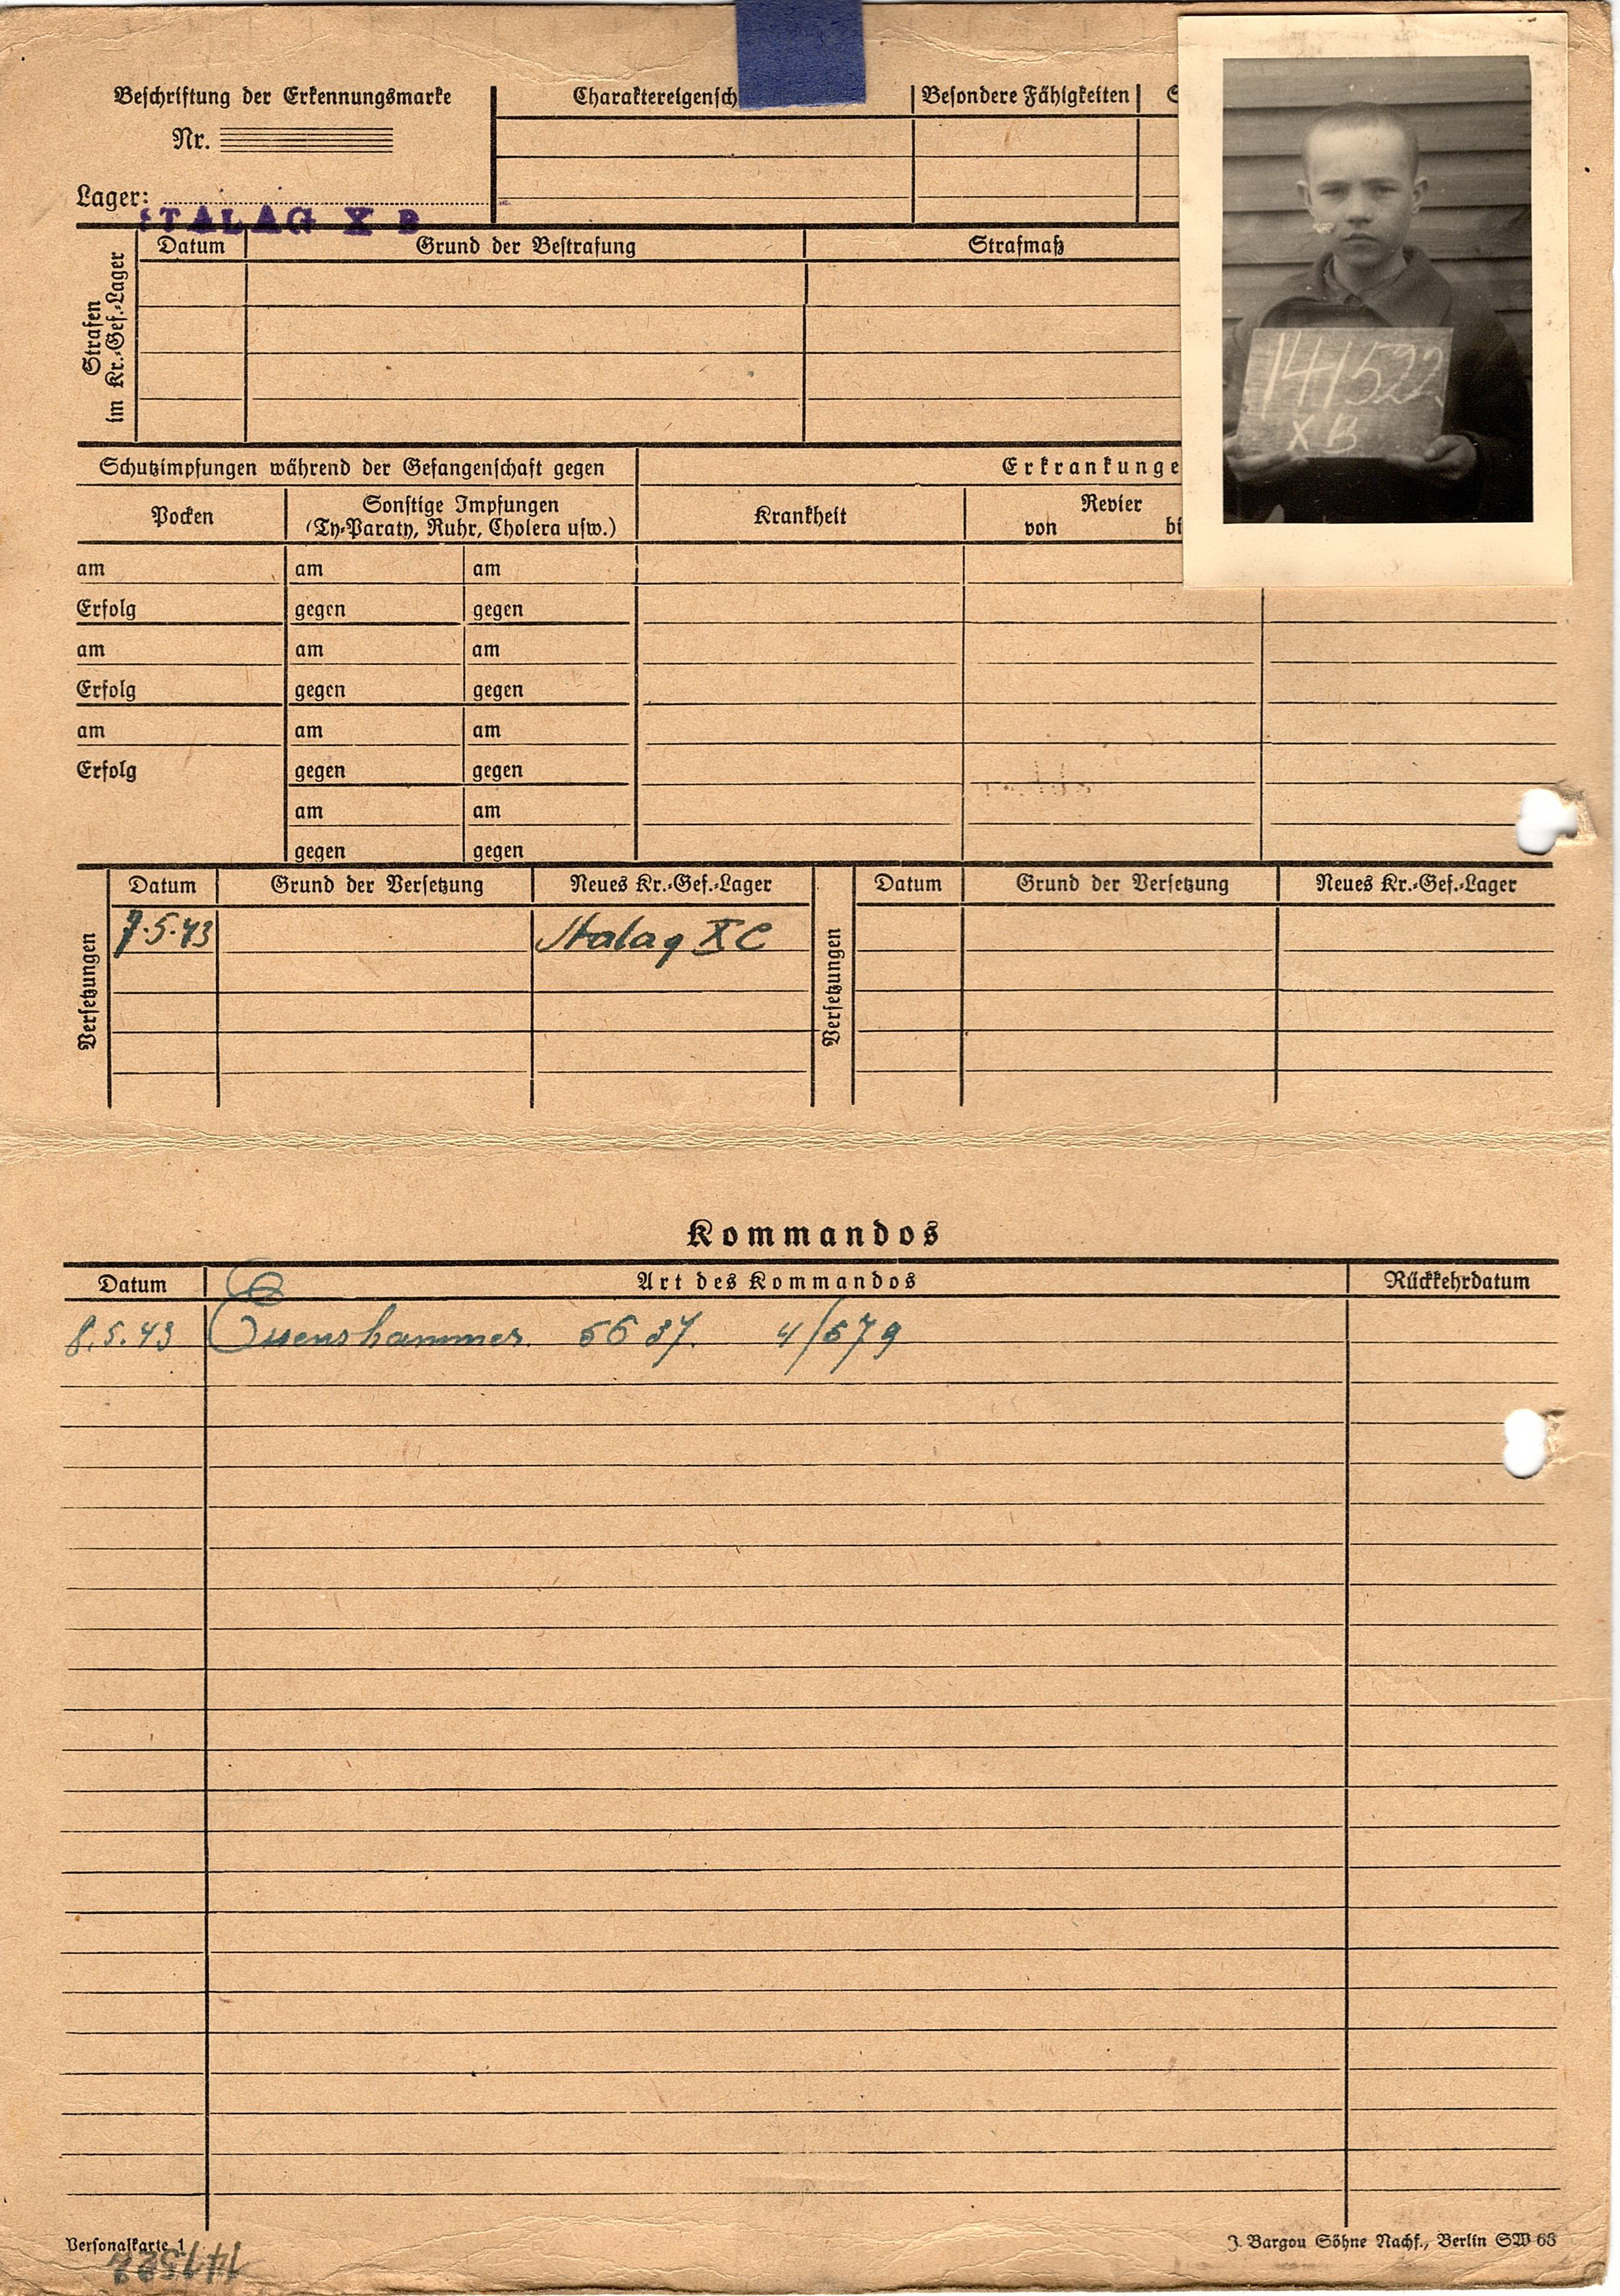 Beschriftung der Erkennungsmarke
Nr.
Lager:
STALAG X B
Charaktereigensch
Besondere Fähigkeiten
S
141522
X B
Strafen
im Kr.-Gef.-Lager
Datum Grund der Bestrafung Strafmaß
Schutzimpfungen während der Gefangenschaft gegen
Erkrankunge
Pocken
Sonstige Impfungen
(Ty-Paraty, Ruhr, Cholera usw.)
Krankheit
Revier
von bi
am am am
Erfolg gegen gegen
am am am
Erfolg gegen gegen
am am am
Erfolg gegen gegen
am am
gegen gegen
Versetzungen
Datum Grund der Versetzung Neues Kr.-Gef.-Lager
7.5.43 Stalag X C
Versetzungen
Datum Grund der Versetzung Neues Kr.-Gef.-Lager
Kommandos
Datum Art des Kommandos Rückkehrdatum
8.5.43 Esenshammer. 5637. 4/579
Personalkarte 1
J. Bargou Söhne Nachf., Berlin SW 68
141522